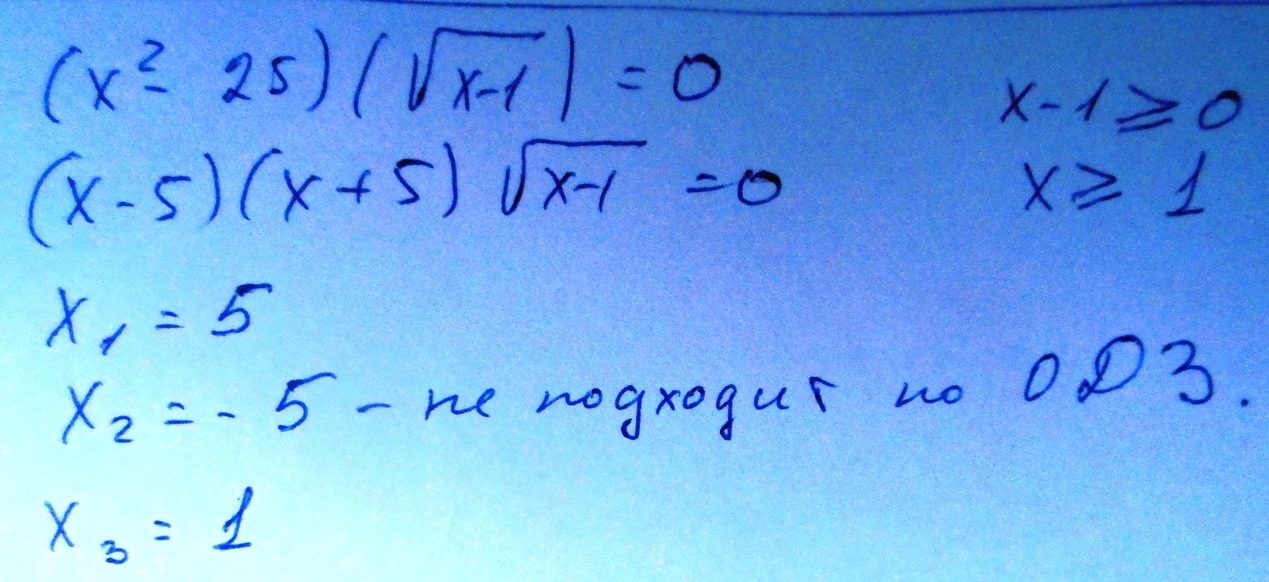 (x² - 25)(√(x-1)) = 0
x-1 ⩾ 0
(x-5)(x+5) √(x-1) = 0
x ⩾ 1
x₁ = 5
x₂ = -5 - не подходит по ОДЗ.
x₃ = 1